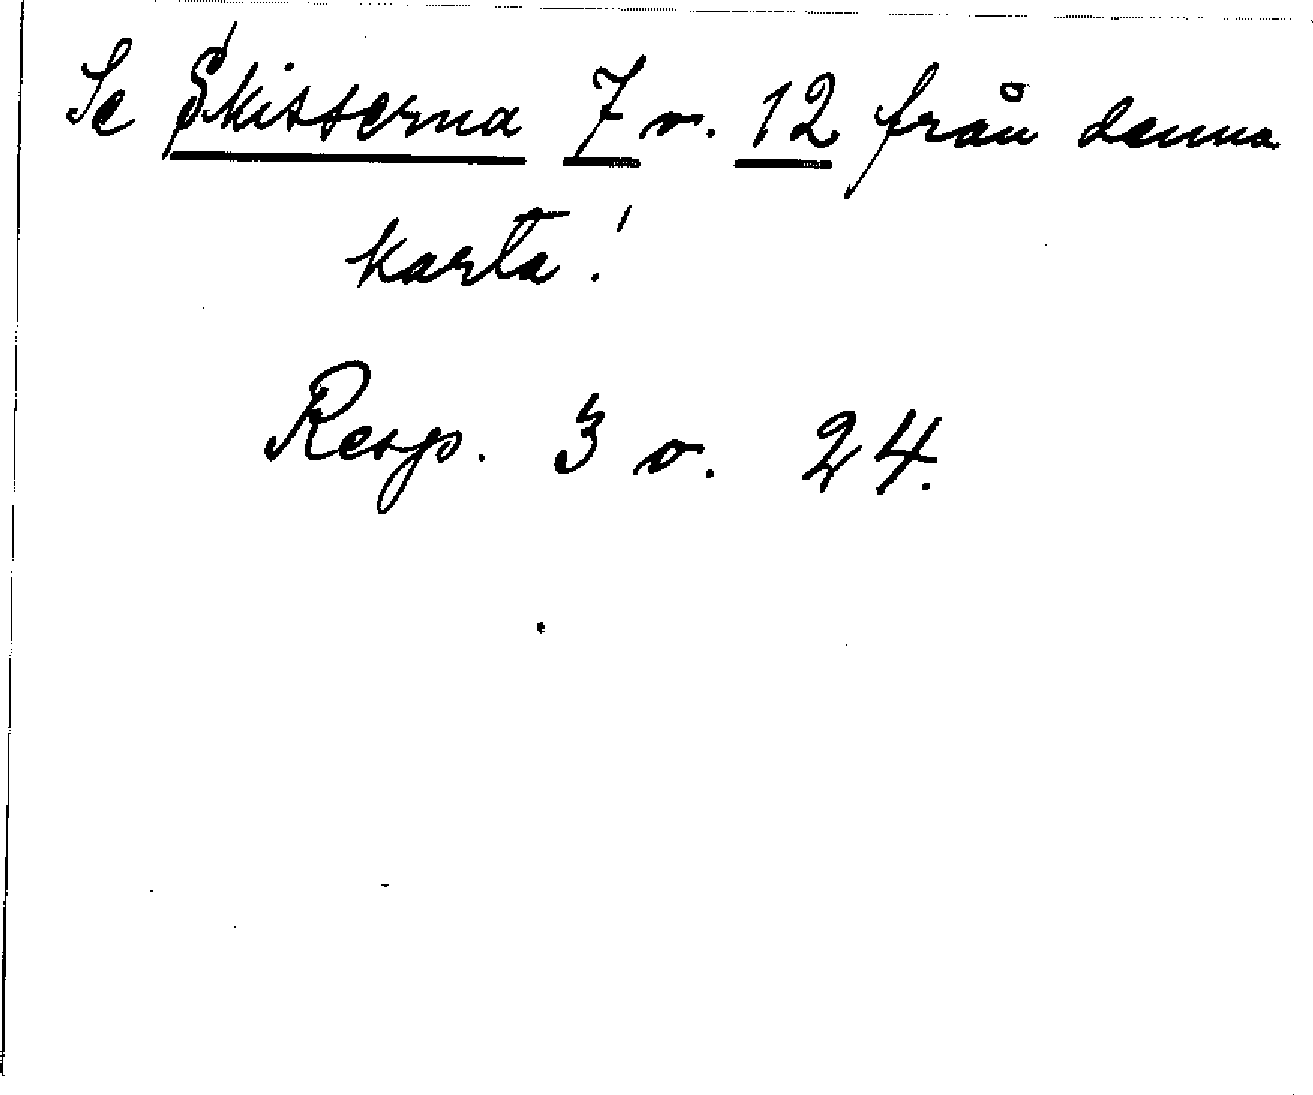 Se Skisserna 7 o. 12 från denna
karta!
Resp. 3 o. 24.